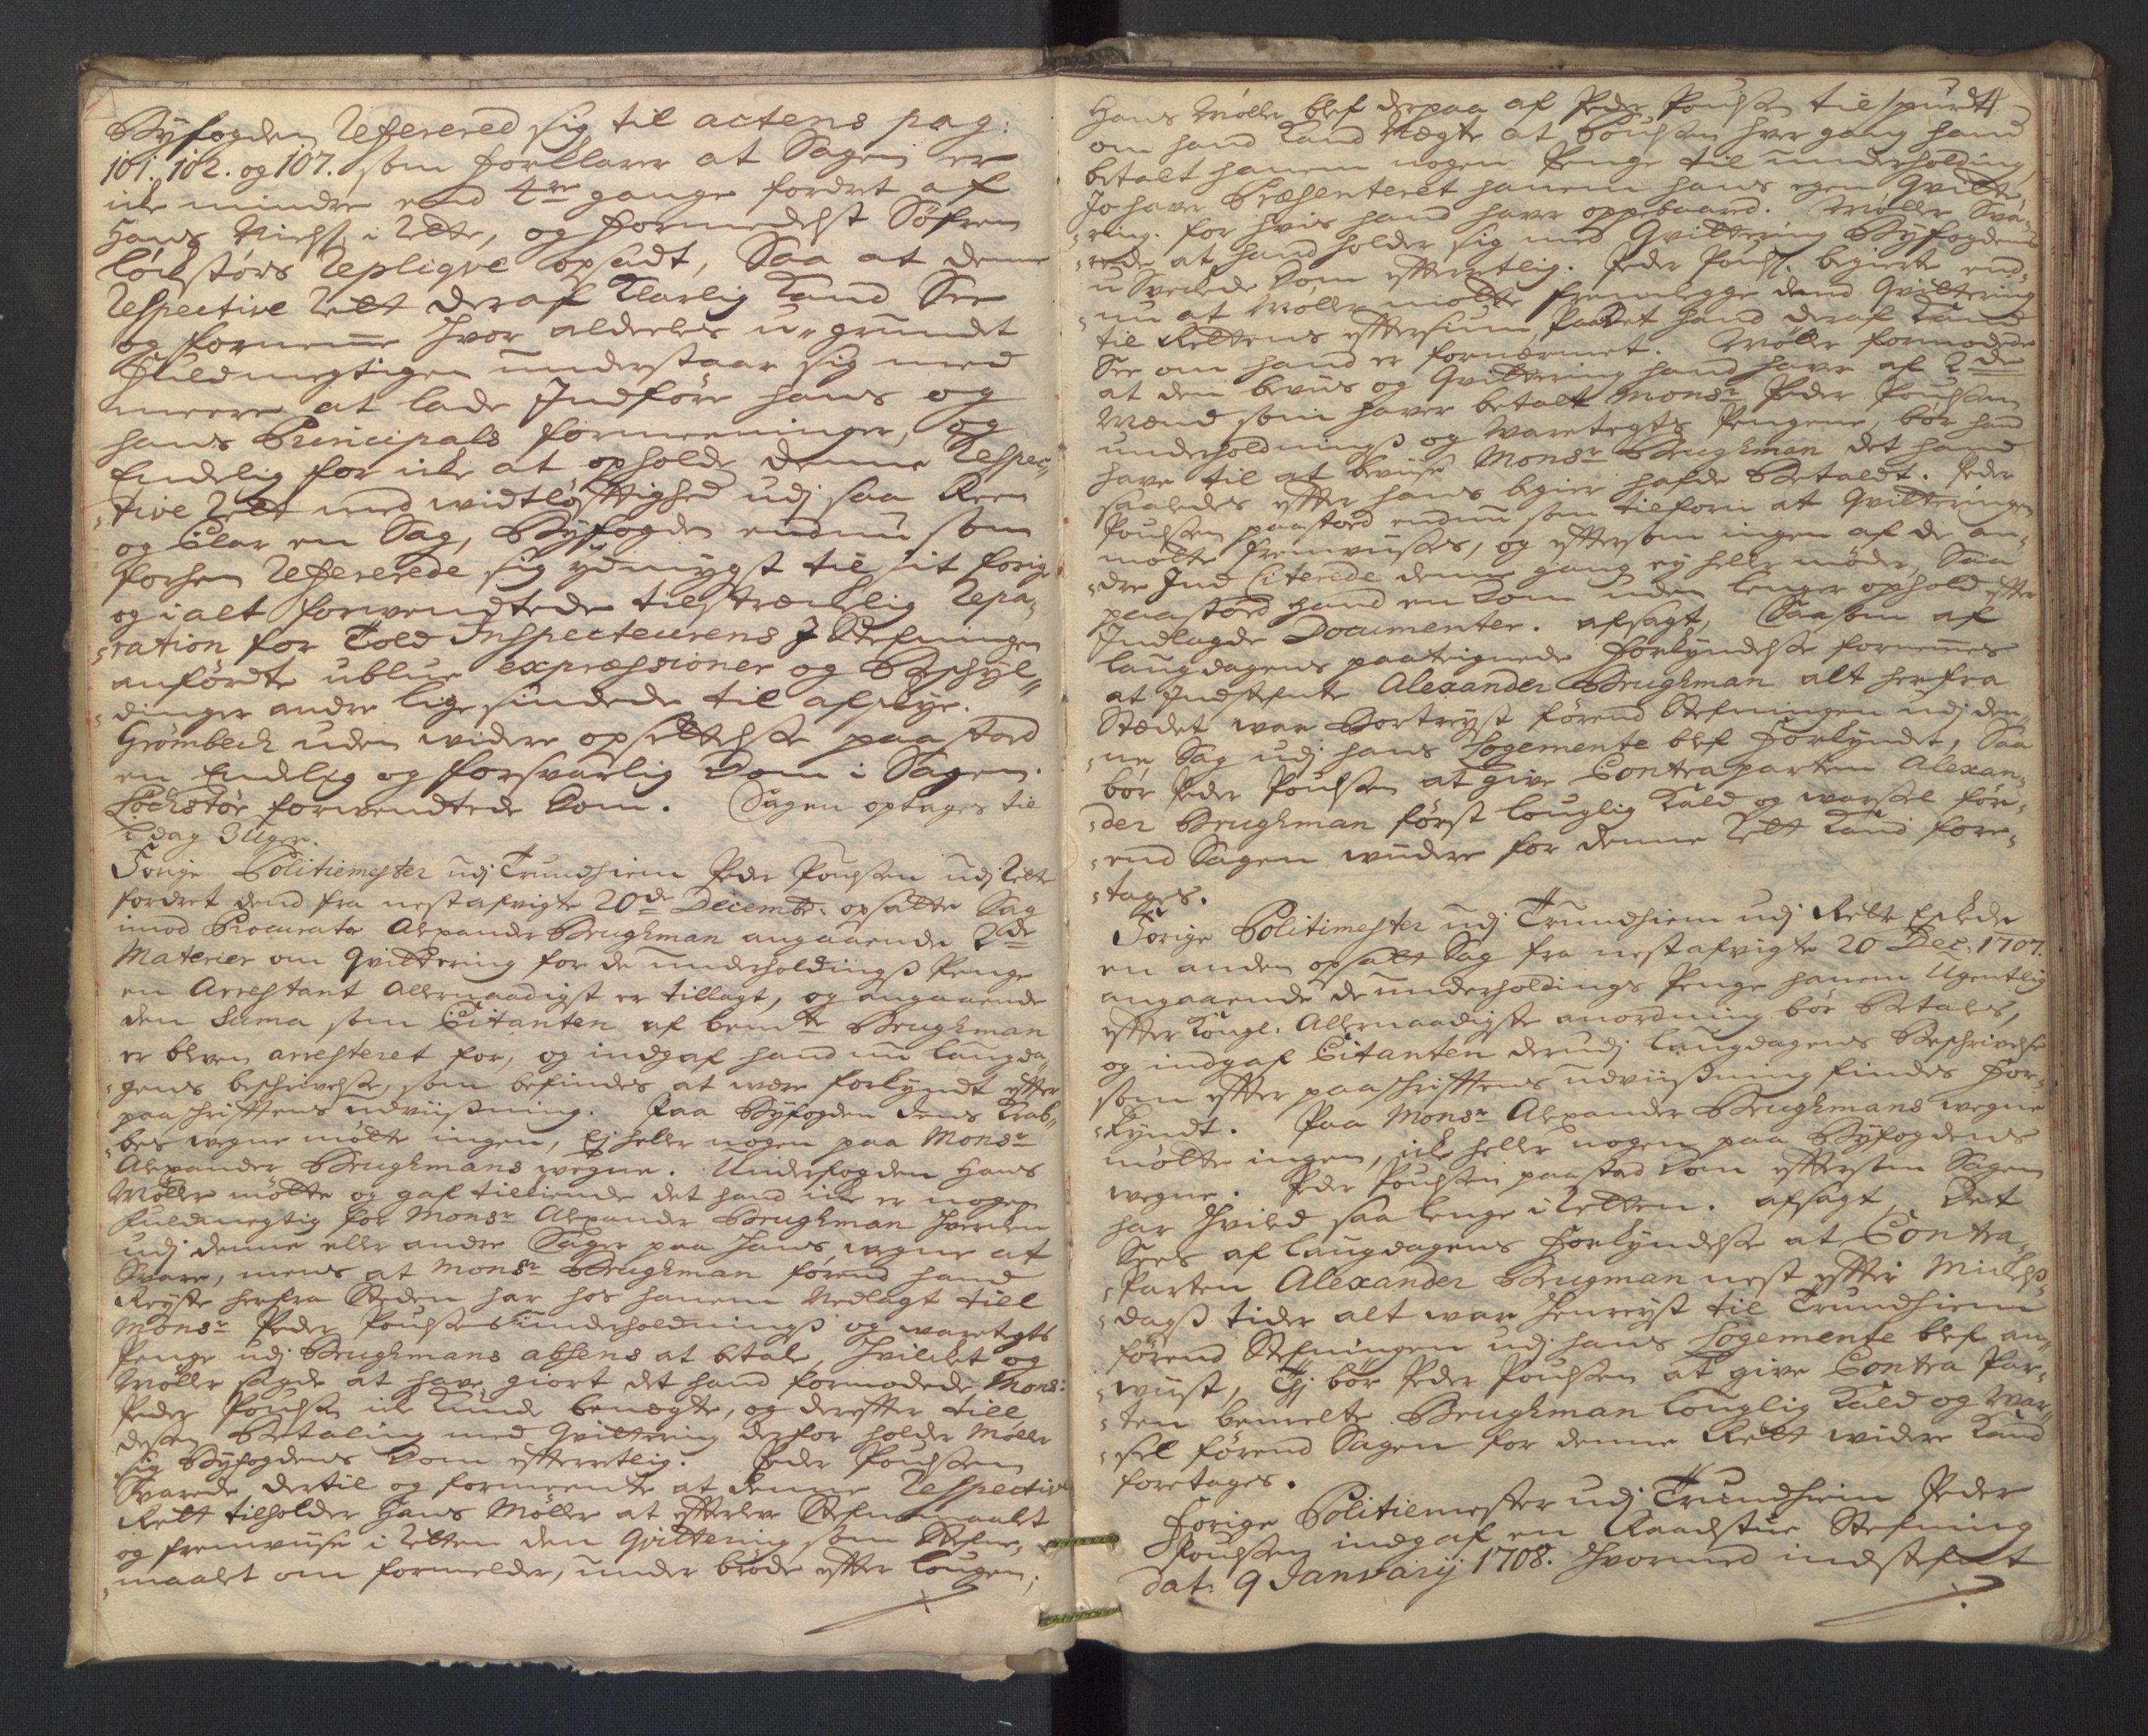 Byfogden Referered sig til actens pag:
101. 102. og 107. som forklarer at Sagen er
icke mindre end 4re gange fordret af
Hans Nielss: i Rette, og formedelst Söfren
Löchstörs Repliqve opsadt, Saa at denne
Respective Rett deraf klarlig kand See
og fornemme hvor aldeeles u-grundet
fuldmegtigen understaar sig med
meere at lade Indföre hans og
hans Principals formeeninger, og
Endelig for icke at opholde denne Respec-
tive Rett med widtløfftighed udj saa Reen
og Clar en Sag, Byfogden endnu som
forhen Refererede sig ydmygst til sit forige
og i alt forwendtede tilstreckelig Repa-
ration for Told Inspecteurens J Stefningen
anfördte ublue expressioner og Beschyl-
dinger andre lige sindede til afskye.
Grømbech uden widere opsettelsse paastod
en Endelig og forsvarlig Dom i Sagen.
Löchstör forwendtede Dom. Sagen optages til
i dag 3 Uger.
Forige Politiemester udj Trundhiem Peder Poulssen udj Rette
fordret dend fra nestafvigte 20de Decembr: opsatte Sag
imod Procurator Alexander Brughman angaaende 2de
Materier om Qvittering for de underholdingss Penge
en Arrestant Allernaadigst er tillagt, og angaaende
den Suma som Citanten af bemte Brughman
er bleven arresteret for, og indgaf hand nu laugda-
gens beschrivelsse, som befindes at were forkyndt effter
paaschrifftens udviissning. Paa Byfogden Jens Krab-
bes wegne mötte ingen, Ej heller nogen paa Monsr
Alexander Brughmans wegne. Underfogden Hans
Møller mötte og gaf tilkiende det hand icke er nogen
fuldmegtig for Monsr Alexander Brughman hverken
udj denne eller andre Sager paa hans wegne at
Svare, mens at Monsr Brughman förend hand
Reyste herfra Steden har hos hanem Nedlagt till
Monsr Peder Poulssens underholdningss og waretegts
Penge udj Brughmans absens at betale, hvilcket og
Møller sagde at have giort det hand formodede Mons:
Peder Poulssen icke kunde benegte, og dereffter till
dessen Betaling med Qvittering derfor holder Møller
sig Byfogdens Dom effterretlig. Peder Poulssen
Svarede dertil og formeente at denne Respective
Rett tilholder Hans Møller at effterleve Stefnemaalet
og fremviise i Retten den Qvittering som Stefne-
maalet om formelder, under bröde effter Lougen;
Hans Møller blef derpaa af Peder Poulssen tilspurdt
om hand kand Negte at Poulssen hver gang hand
betalt hanem nogen Penge til underholding
Jo haver Præsenteret hanem hans egen Qvitte-
ring for hvis hand haver oppebaaret. Møller Sva-
rede at hand holder sig med Qvittering Byfogdens
u Sveckede Dom effterretlig. Peder Poulss: begierte end-
nu at Møller motte fremlegge dend Qvittering
til Rettens effterSiun, Paa det hand deraf kand
See om hand er fornærmet. Møller formodede
at den beviis og Qvittering hand haver af 2de
Mænd som haver betalt Monsr Peder Poulssen
underholdningss og Waretegts Pengene, bör hand
have til at beviise Monsr Brughman det hand
saaledes effter hans begier hafde Betaldt. Peder
Poulssen paastod endnu som tilforn at Qvitteringen
motte fremviises, og efftersom ingen af de an-
dre Ind Citerede denne gang ey heller möder, Saa
paastod hand en Dom uden lenger ophold effter
Indlagde Documenter. afsagt, Saasom af
laugdagens paateignede forkyndelsse fornemmes
at Indstefnte Alexander Brughman alt herfra
Stædet war Bortreyst förend Stefningen udj den-
ne Sag udj hans Logemente blef forkyndet, Saa
bör Peder Poulssen at give Contraparten Alexan-
der Brughman först louglig kald og warssel för-
end Sagen widere for denne Rett kand fore-
tages.
Forige Politimester udj Trundhiem udj Rette Eskede
en anden opsatt Sag fra nestafvigte 20 Dec: 1707.
angaaende de underholdings Penge hanem Ugentlig
effter kongl: Allernaadigste anordning bör Betales,
og indgaf Citanten derudj laugdagens Beschrivelse
som effter paaschrifftens udviissning findes for-
kyndt. Paa Monsr Alexander Brughmans wegne
mötte ingen, icke heller nogen paa Byfogdens
wegne. Peder Poulssen paastod Dom efftersom Sagen
har hviled saa lenge i Retten. afsagt, Det
Sees af laugdagens forkyndelsse at Contra-
Parten Alexander Brugman nest effter Michels-
dagss tider alt war henreyst til Trundhiem
förend Stefningen udj hans Logemente blef an-
wiist, Thj bör Peder Poulssen at give Contra Par-
ten bemelte Brughman louglig kald og war-
sel förend Sagen for denne Rett widere kand
foretages.
Forige Politiemester udj Trundhiem Peder
Poulssen indgaf en Raadstue Stefning
dat: 9 Janvarij 1708. hvormed indstefnt